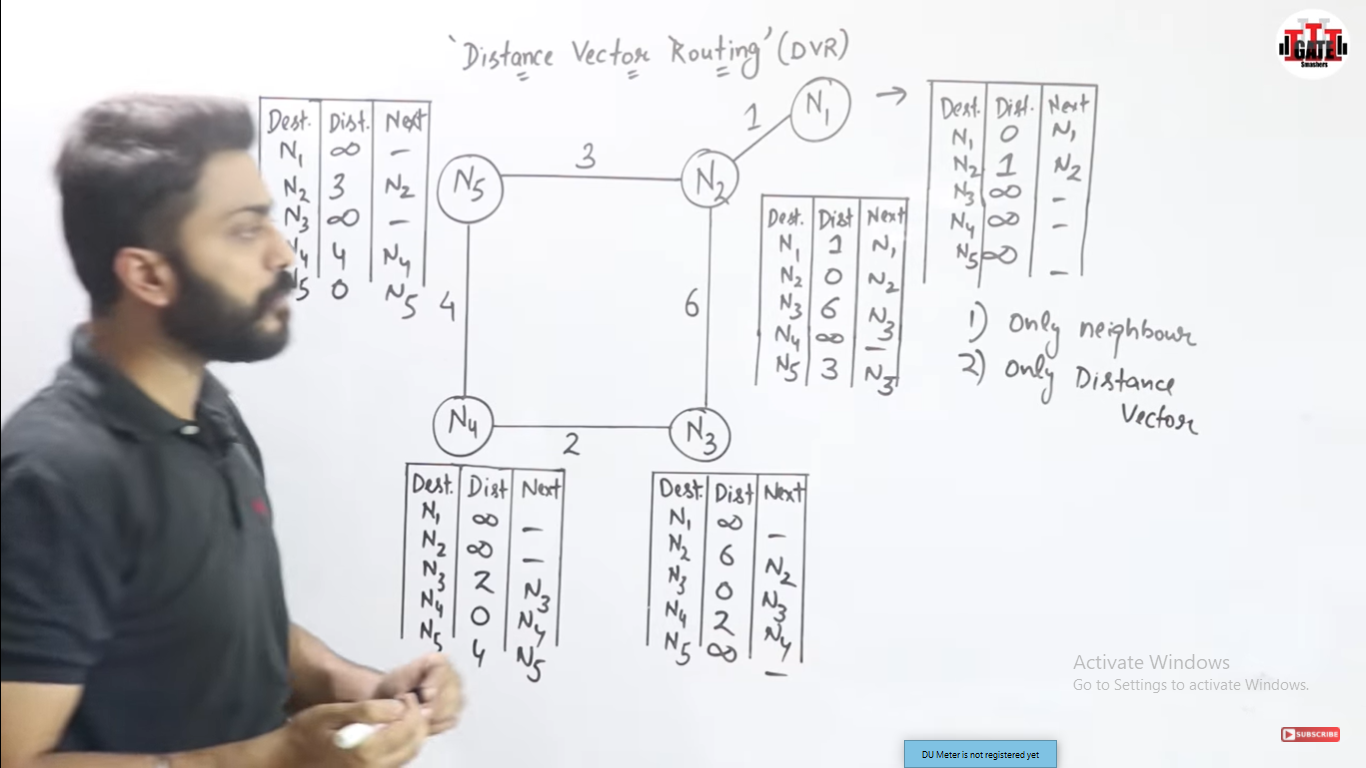 'Distance Vector Routing' (DVR)
GATE
Smashers
Dest. Dist. Next
N1 ∞ -
N2 3 N2
N3 ∞ -
N4 4 N4
N5 0 N5
N5
3
N2
1
N1
→
Dest. Dist. Next
N1 0 N1
N2 1 N2
N3 ∞ -
N4 ∞ -
N5 ∞ -
4
6
Dest. Dist Next
N1 1 N1
N2 0 N2
N3 6 N3
N4 ∞ -
N5 3 N3
1) Only neighbour
2) Only Distance
Vector
N4
2
N3
Dest. Dist Next
N1 ∞ -
N2 ∞ -
N3 2 N3
N4 0 N4
N5 4 N5
Dest. Dist Next
N1 ∞ -
N2 6 N2
N3 0 N3
N4 2 N4
N5 ∞ -
Activate Windows
Go to Settings to activate Windows.
SUBSCRIBE
DU Meter is not registered yet